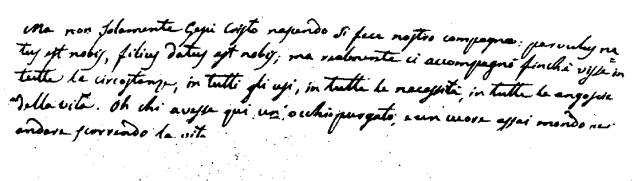 Ma non solamente Gesù Cristo nascendo si fece nostro compagno: parvulus na
tus est nobis, filius datus est nobis; ma realmente ci accompagnò finchè visse in
tutte le circostanze, in tutti gli usi, in tutte le necessità, in tutte le angoscie
della vita. Oh chi avesse qui un'occhio purgato, e un cuore assai mondo per
andare scorrendo la vita